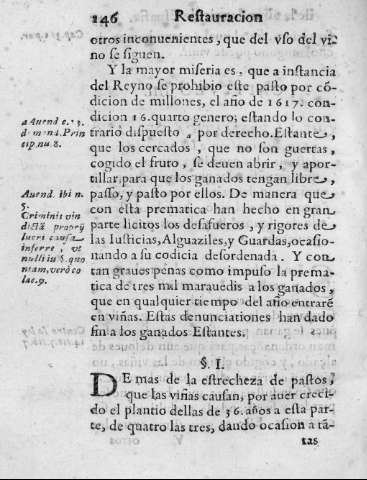 146 Restauracion
otros inconuenientes, que del vso del vi-
no se siguen.
Y la mayor miseria es, que a instancia
del Reyno se prohibio este pasto por cō-
dicion de millones, el año de 1617. con-
dicion 16. quarto genero, estando lo con-
trario dispuesto a por derecho. Estante,
que los cercados, que no son guertas,
cogido el fruto, se deuen abrir, y apor-
tillar para que los ganados tengan libre
passo, y pasto por ellos. De manera que
con esta prematica han hecho en gran
parte licitos los desafueros, y rigores de
las Iusticias, Alguaziles, y Guardas, ocasio-
nando a su codicia desordenada. Y con
tan graues penas como impuso la prema-
tica de tres mil marauedis a los ganados,
que en qualquier tiempo del año entrarē
en viñas. Estas denunciationes han dado
fin a los ganados Estantes.
a Auend. c. 13.
de mans. Prin
cip. nu. 8.
Auend. ibi n.
5.
Criminis vin
dictā proprij
lucri causa
inferre, vt
nulli iu S. quo
niam, verò co
lac. 9.
§. I.
DE mas de la estrecheza de pastos,
que las viñas causan, por auer creci-
do el plantio dellas de 36. años a esta par-
te, de quatro las tres, dando ocasion a tā-
tas